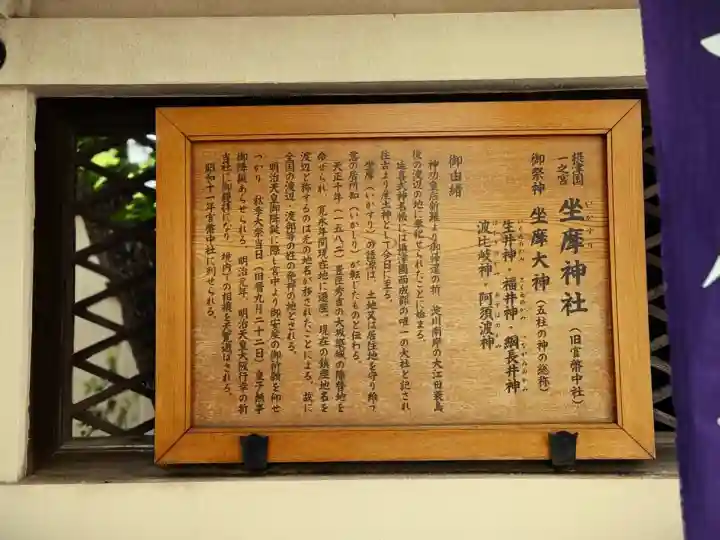 摂津国
一之宮
坐摩神社
いかすり
(旧官幣中社)
御祭神 坐摩大神(五柱の神の総称)
生井神・福井神・綱長井神
波比岐神・阿須波神
御由緒
神功皇后新羅より御帰還の折、淀川南岸の大江田蓑島
後の渡辺の地に奉祀せられたことに始まる。
延喜式神名帳には摂津国西成郡の唯一の大社と記され
往古より産土神として今日に至る。
坐摩(いかすり)の語源は、土地又は居住地を守り給う
意の居所知(いかしり)が転じたものと伝わる。
天正十年(一五八二)豊臣秀吉の大坂築城の際替地を
命ぜられ、寛永年間現在地に遷座。現在の鎮座地名を
渡辺と称するのは元の地名が移されたことによる。故に
全国の渡辺・渡部等の姓の発祥の地とされる。
明治天皇御降誕に際し宮中より御安産の御祈願を仰せ
つかり、秋季大祭当日(旧暦九月二十二日)皇子無事
御降誕あらせられる。明治元年、明治天皇大阪行幸の折
当社に御親拝になり、境内での相撲を天覧遊ばされる。
昭和十一年官幣中社に列せられる。